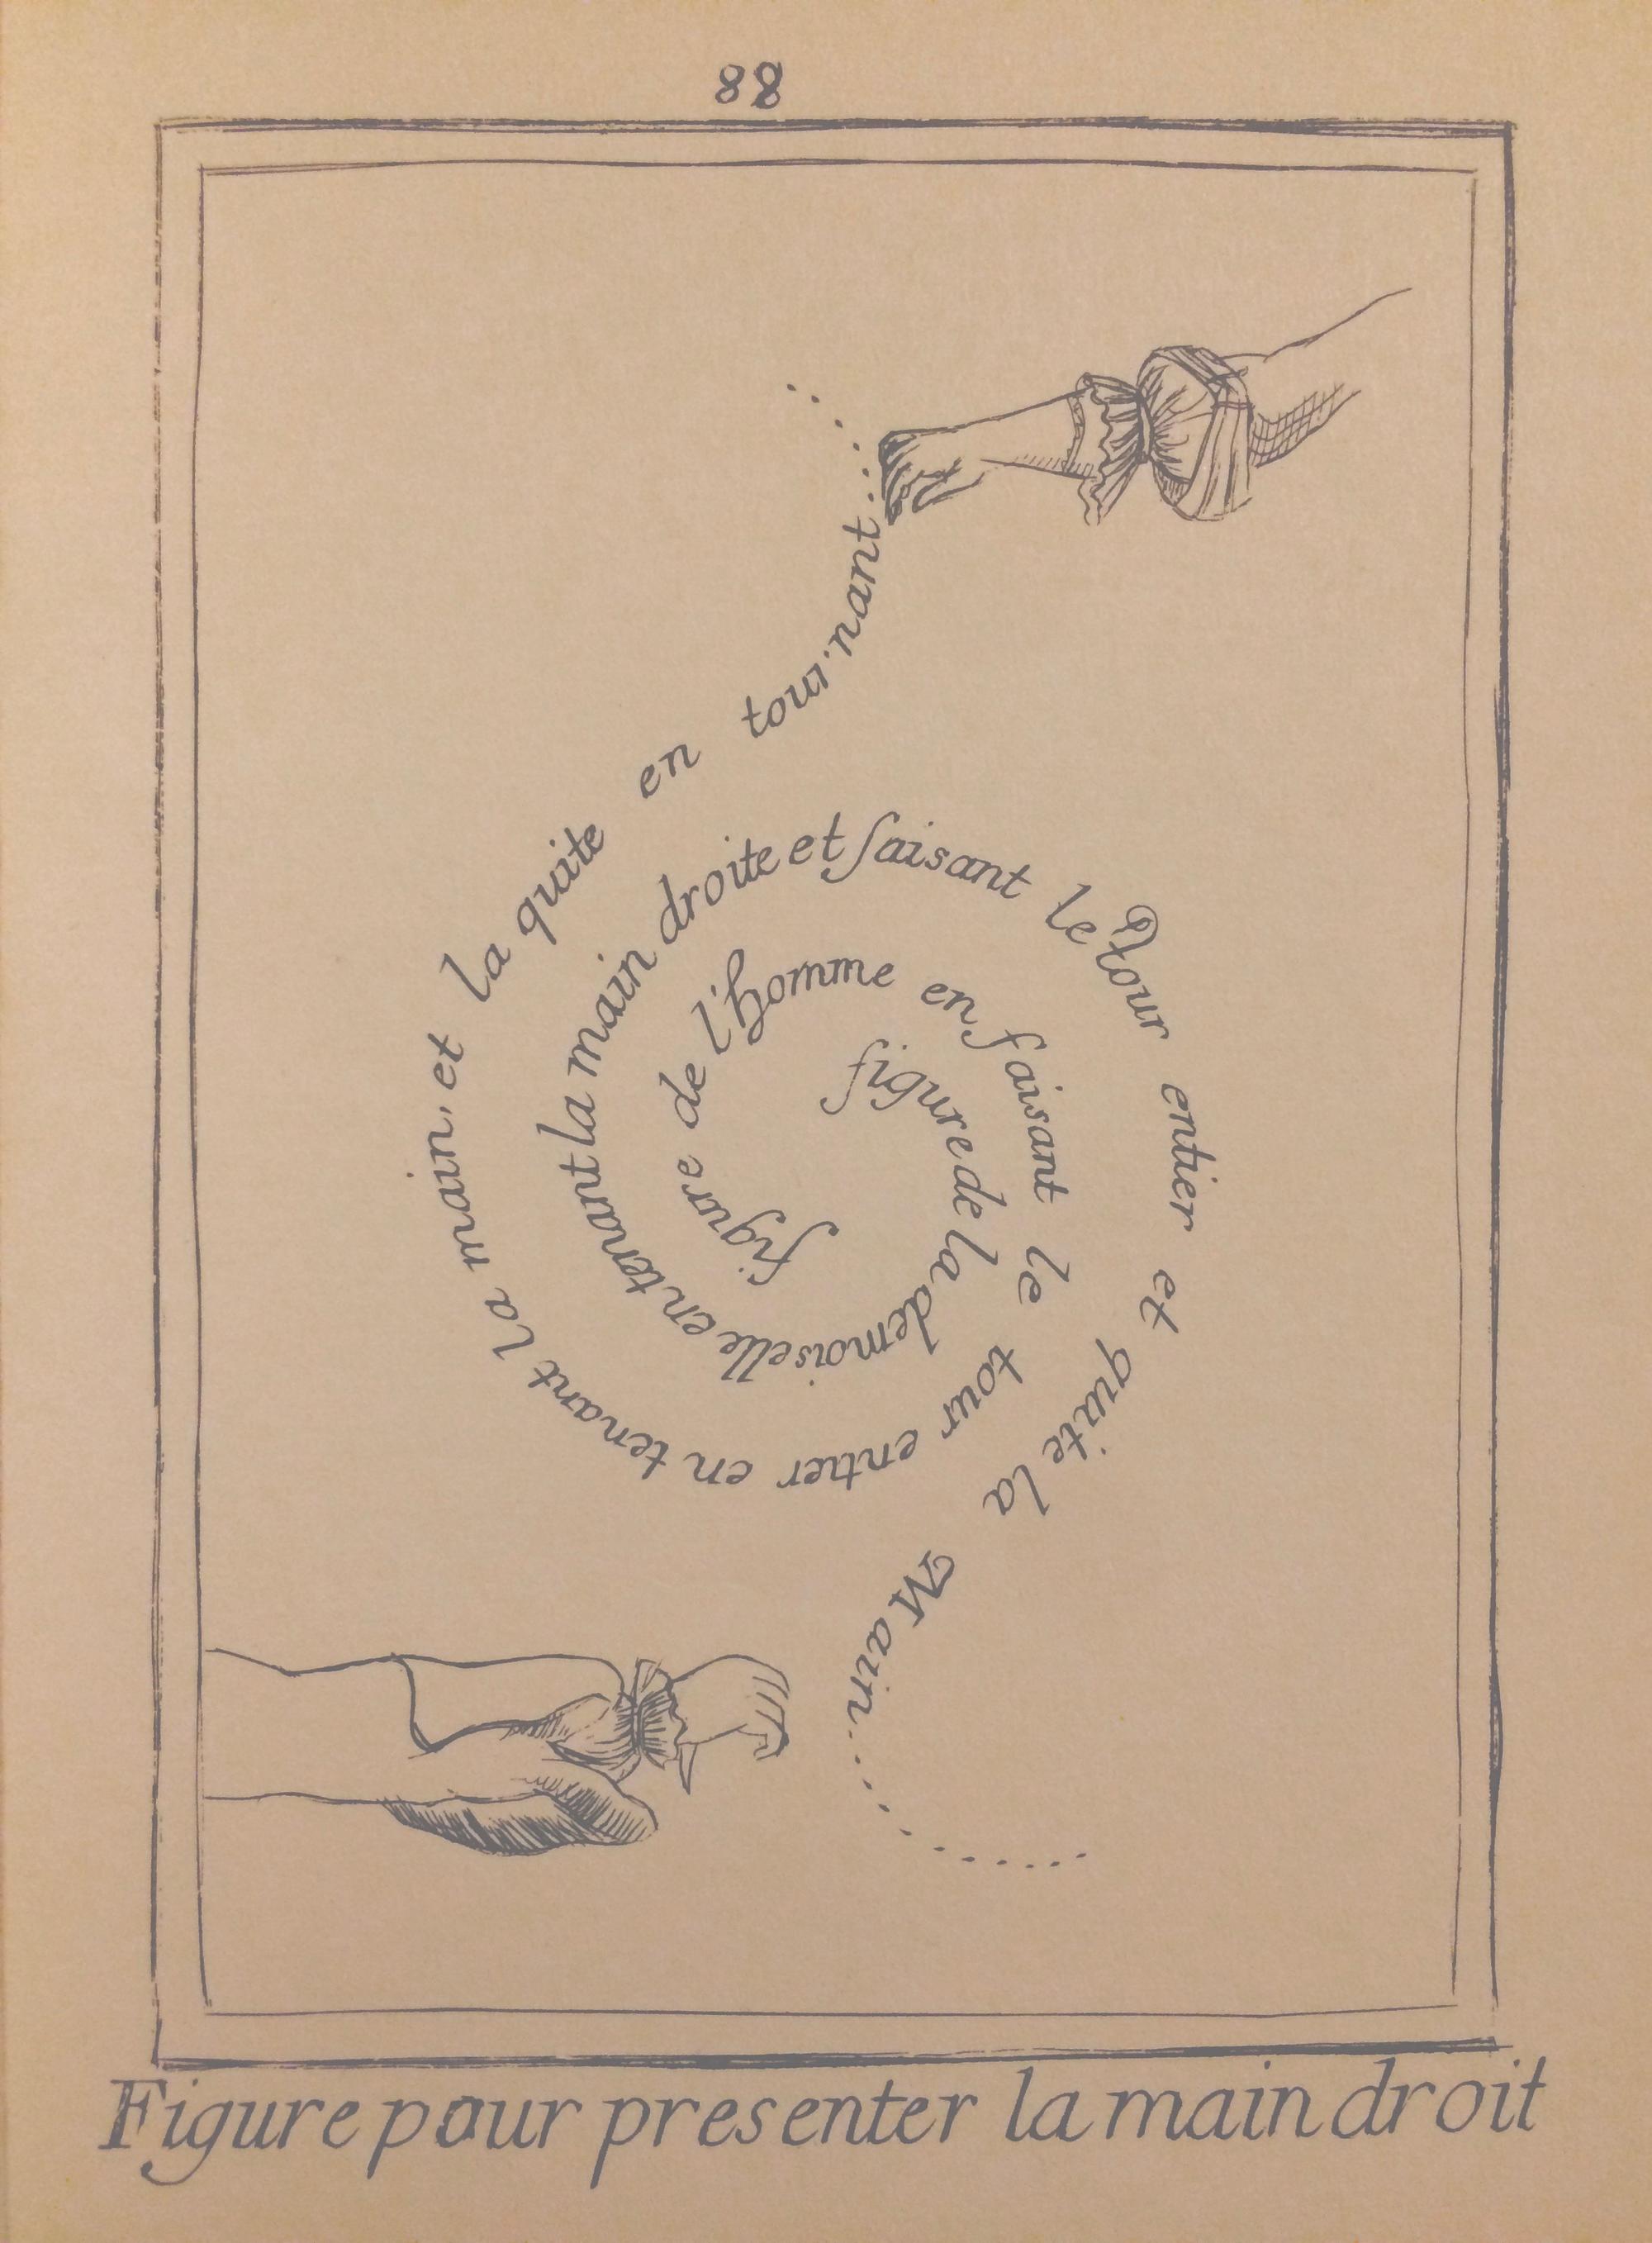 88
figure de l'homme en faisant le tour entier en tenant la main, et la quite en tournant
figure de la demoiselle en tenant la main droite et faisant le tour entier et quite la Main
Figure pour presenter la main droit